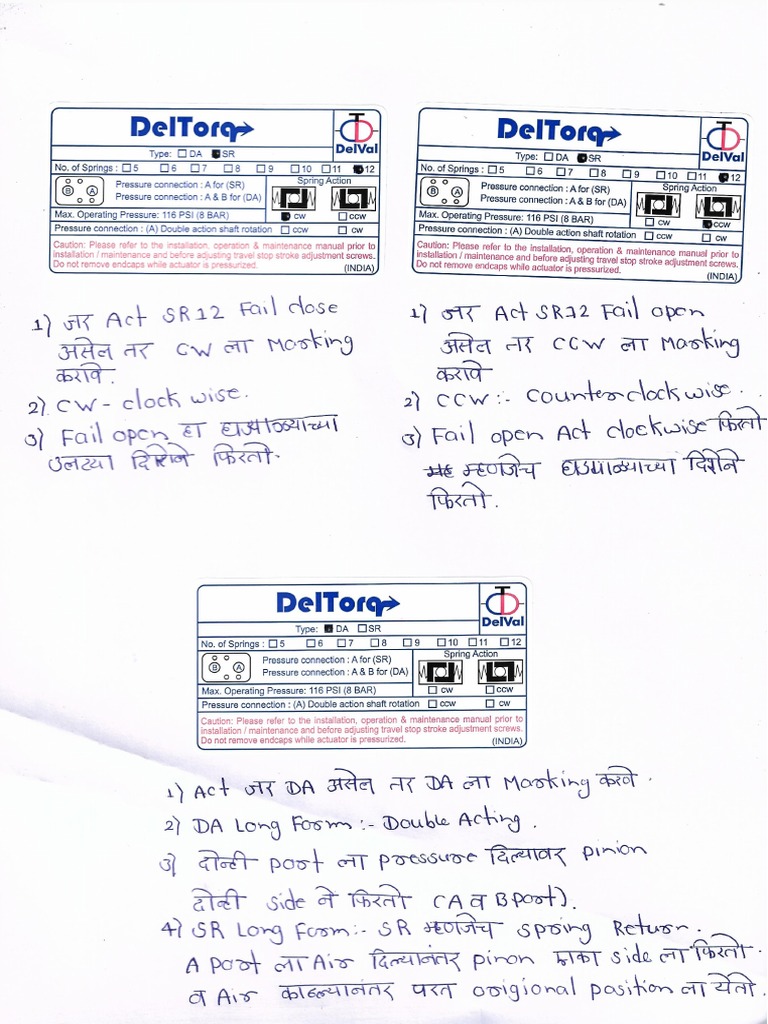 DelTorq
DelVal
Type: DA SR
No. of Springs : 5 6 7 8 9 10 11 12
B A
Pressure connection : A for (SR)
Pressure connection : A & B for (DA)
Spring Action
Max. Operating Pressure: 116 PSI (8 BAR) CW CCW
Pressure connection : (A) Double action shaft rotation CCW CW
Caution: Please refer to the installation, operation & maintenance manual prior to
installation / maintenance and before adjusting travel stop stroke adjustment screws.
Do not remove endcaps while actuator is pressurized.
(INDIA)
1) जर Act SR12 Fail close
असेल तर CW ला Marking
करावे.
2) CW - clock wise.
3) Fail open हा घड्याळ्याच्या
उलट्या दिशेने फिरतो.
DelTorq
DelVal
Type: DA SR
No. of Springs : 5 6 7 8 9 10 11 12
B A
Pressure connection : A for (SR)
Pressure connection : A & B for (DA)
Spring Action
Max. Operating Pressure: 116 PSI (8 BAR) CW CCW
Pressure connection : (A) Double action shaft rotation CCW CW
Caution: Please refer to the installation, operation & maintenance manual prior to
installation / maintenance and before adjusting travel stop stroke adjustment screws.
Do not remove endcaps while actuator is pressurized.
(INDIA)
1) जर Act SR12 Fail open
असेल तर CCW ला Marking
करावे
2) CCW :- Counterclockwise.
3) Fail open Act clockwise फिरतो
म्हणजेच घड्याळ्याच्या दिशेने
फिरतो.
DelTorq
DelVal
Type: DA SR
No. of Springs : 5 6 7 8 9 10 11 12
B A
Pressure connection : A for (SR)
Pressure connection : A & B for (DA)
Spring Action
Max. Operating Pressure: 116 PSI (8 BAR) CW CCW
Pressure connection : (A) Double action shaft rotation CCW CW
Caution: Please refer to the installation, operation & maintenance manual prior to
installation / maintenance and before adjusting travel stop stroke adjustment screws.
Do not remove endcaps while actuator is pressurized.
(INDIA)
1) Act जर DA असेल तर DA ला Marking करावे.
2) DA Long Form :- Double Acting.
3) दोन्ही port ला pressure दिल्यावर pinion
दोन्ही side ने फिरतो (A व B port).
4) SR Long Form :- SR म्हणजेच Spring Return.
A Port ला Air दिल्यानंतर pinon एका side ला फिरतो.
व Air काढल्यानंतर परत origional position ला येतो.